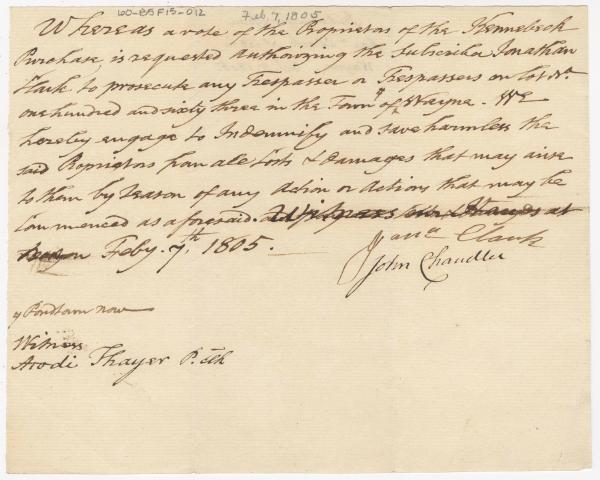 60-BSF15-012 Feb. 7, 1805
Whereas a vote of the Proprietors of the Kennebeck
Purchase, is requested authorizing the subscriber Jonathan
Clark to prosecute any Trespasser or Trespassers on Lot No.
one hundred and sixty three in the Town of Wayne. We
hereby engage to Indemnify and save harmless the
said Proprietors from all Costs & Damages that may arise
to them by reason of any Action or Actions that may be
Commenced as aforesaid. Witness our Hands at
Feby. 7th. 1805.
Jona Clark
John Chandler
Witness
Arodi Thayer P. Clk